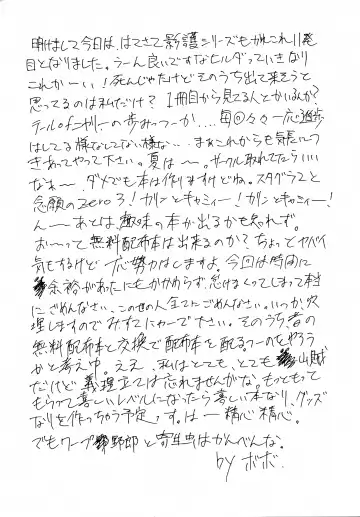 明けまして今日は、はてさて影護シリーズもかれこれ11発
目となりました。うーん良いですなヒルダっていきなり
これかーい!死んじゃたけどそのうち出て来そうと
思ってるのは私だけ?1冊目から見てる人とかいるんか?
テールofニャリーの歩みっつーか…毎回々々一応進歩
はしてる様なしてない様な…まぁこれからも気長につ
きあってやって下さい。夏は〜。サークル取れてたらいい
なぁ〜、ダメでも本は作りますけどね。スタグラ2と
念願のZero3!ガツンとキャミィー!ガツンとキャミィー!
んーあとは、趣味の本が出るかも知れず。
お〜って無料配布本は出来るのか?ちょっとヤバイ
気もするけど一応努力はしますよ、今回は時間に
余裕があったにもかかわらず、怠けまくってしまって本当
にごめんなさい、この世の人全てにごめんなさい。いつか穴
埋しますのでみすてにゃーで下さい。そのうち、君の
無料配布本と交換で配布本を配るっつーのをやろう
かと考え中。ええ、私はとても、とても山賊
だけど義理立ては忘れませんがな。もっともって
もらって喜しいレベルになったら喜しい本なり、グッズ
なりを作っちゃう予定っす。はー精心精心。
でもワープ野郎と寄生虫はかんべんな。
by ボボ.